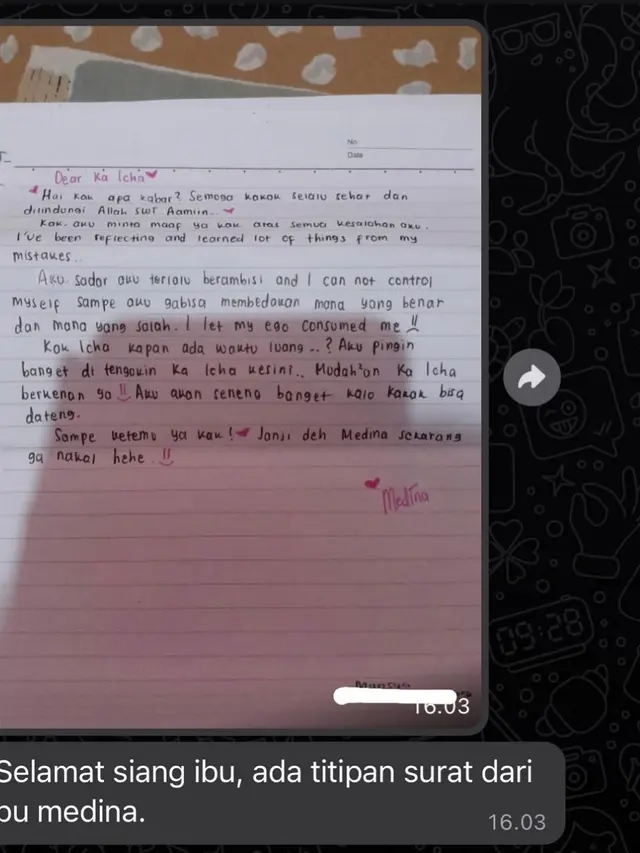 No
Date
Dear Ka Icha
Hai kak apa kabar? Semoga kakak selalu sehat dan
dilindungi Allah SWT Aamiin..
Kak. aku minta maaf ya kak atas semua kesalahan aku.
I've been reflecting and learned lot of things from my
mistakes..
Aku sadar aku terlalu berambisi and I can not control
myself sampe aku gabisa membedakan mana yang benar
dan mana yang salah. I let my ego consumed me !!
Kak Icha kapan ada waktu luang..? Aku pingin
banget di tengokin Ka Icha kesini.. Mudah²an Ka Icha
berkenan ya !! Aku akan seneng banget kalo kakak bisa
dateng.
Sampe ketemu ya kak! Janji deh Medina sekarang
ga nakal hehe !!
Medina
16.03
Selamat siang ibu, ada titipan surat dari
bu medina.
16.03
09:28